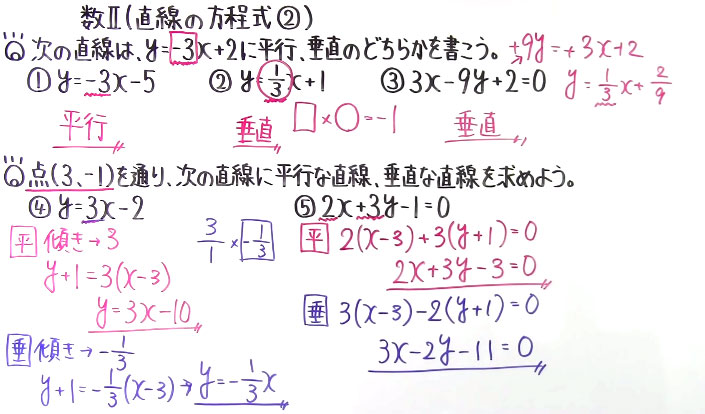 数Ⅱ(直線の方程式②)
次の直線は、y=-3x+2に平行、垂直のどちらかを書こう。
+9y=+3x+2
① y=-3x-5 ② y=1/3x+1 ③ 3x-9y+2=0
y=1/3x+2/9
平行 垂直 □×○=-1 垂直
点(3、-1)を通り、次の直線に平行な直線、垂直な直線を求めよう。
④ y=3x-2 ⑤ 2x+3y-1=0
平 傾き→3
3/1×-1/3
y+1=3(x-3)
y=3x-10
垂 傾き→-1/3
y+1=-1/3(x-3)→y=-1/3x
平 2(x-3)+3(y+1)=0
2x+3y-3=0
垂 3(x-3)-2(y+1)=0
3x-2y-11=0